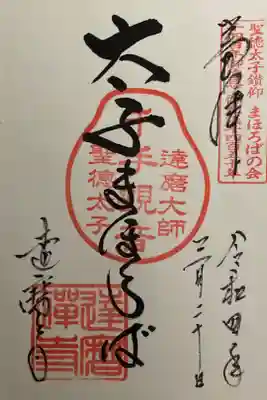 奉拝
聖徳太子讃仰 まほろばの会
令和四年
月二十日
太子まほろば
達磨大師
千手観音
聖徳太子
達磨寺
達磨
禅寺